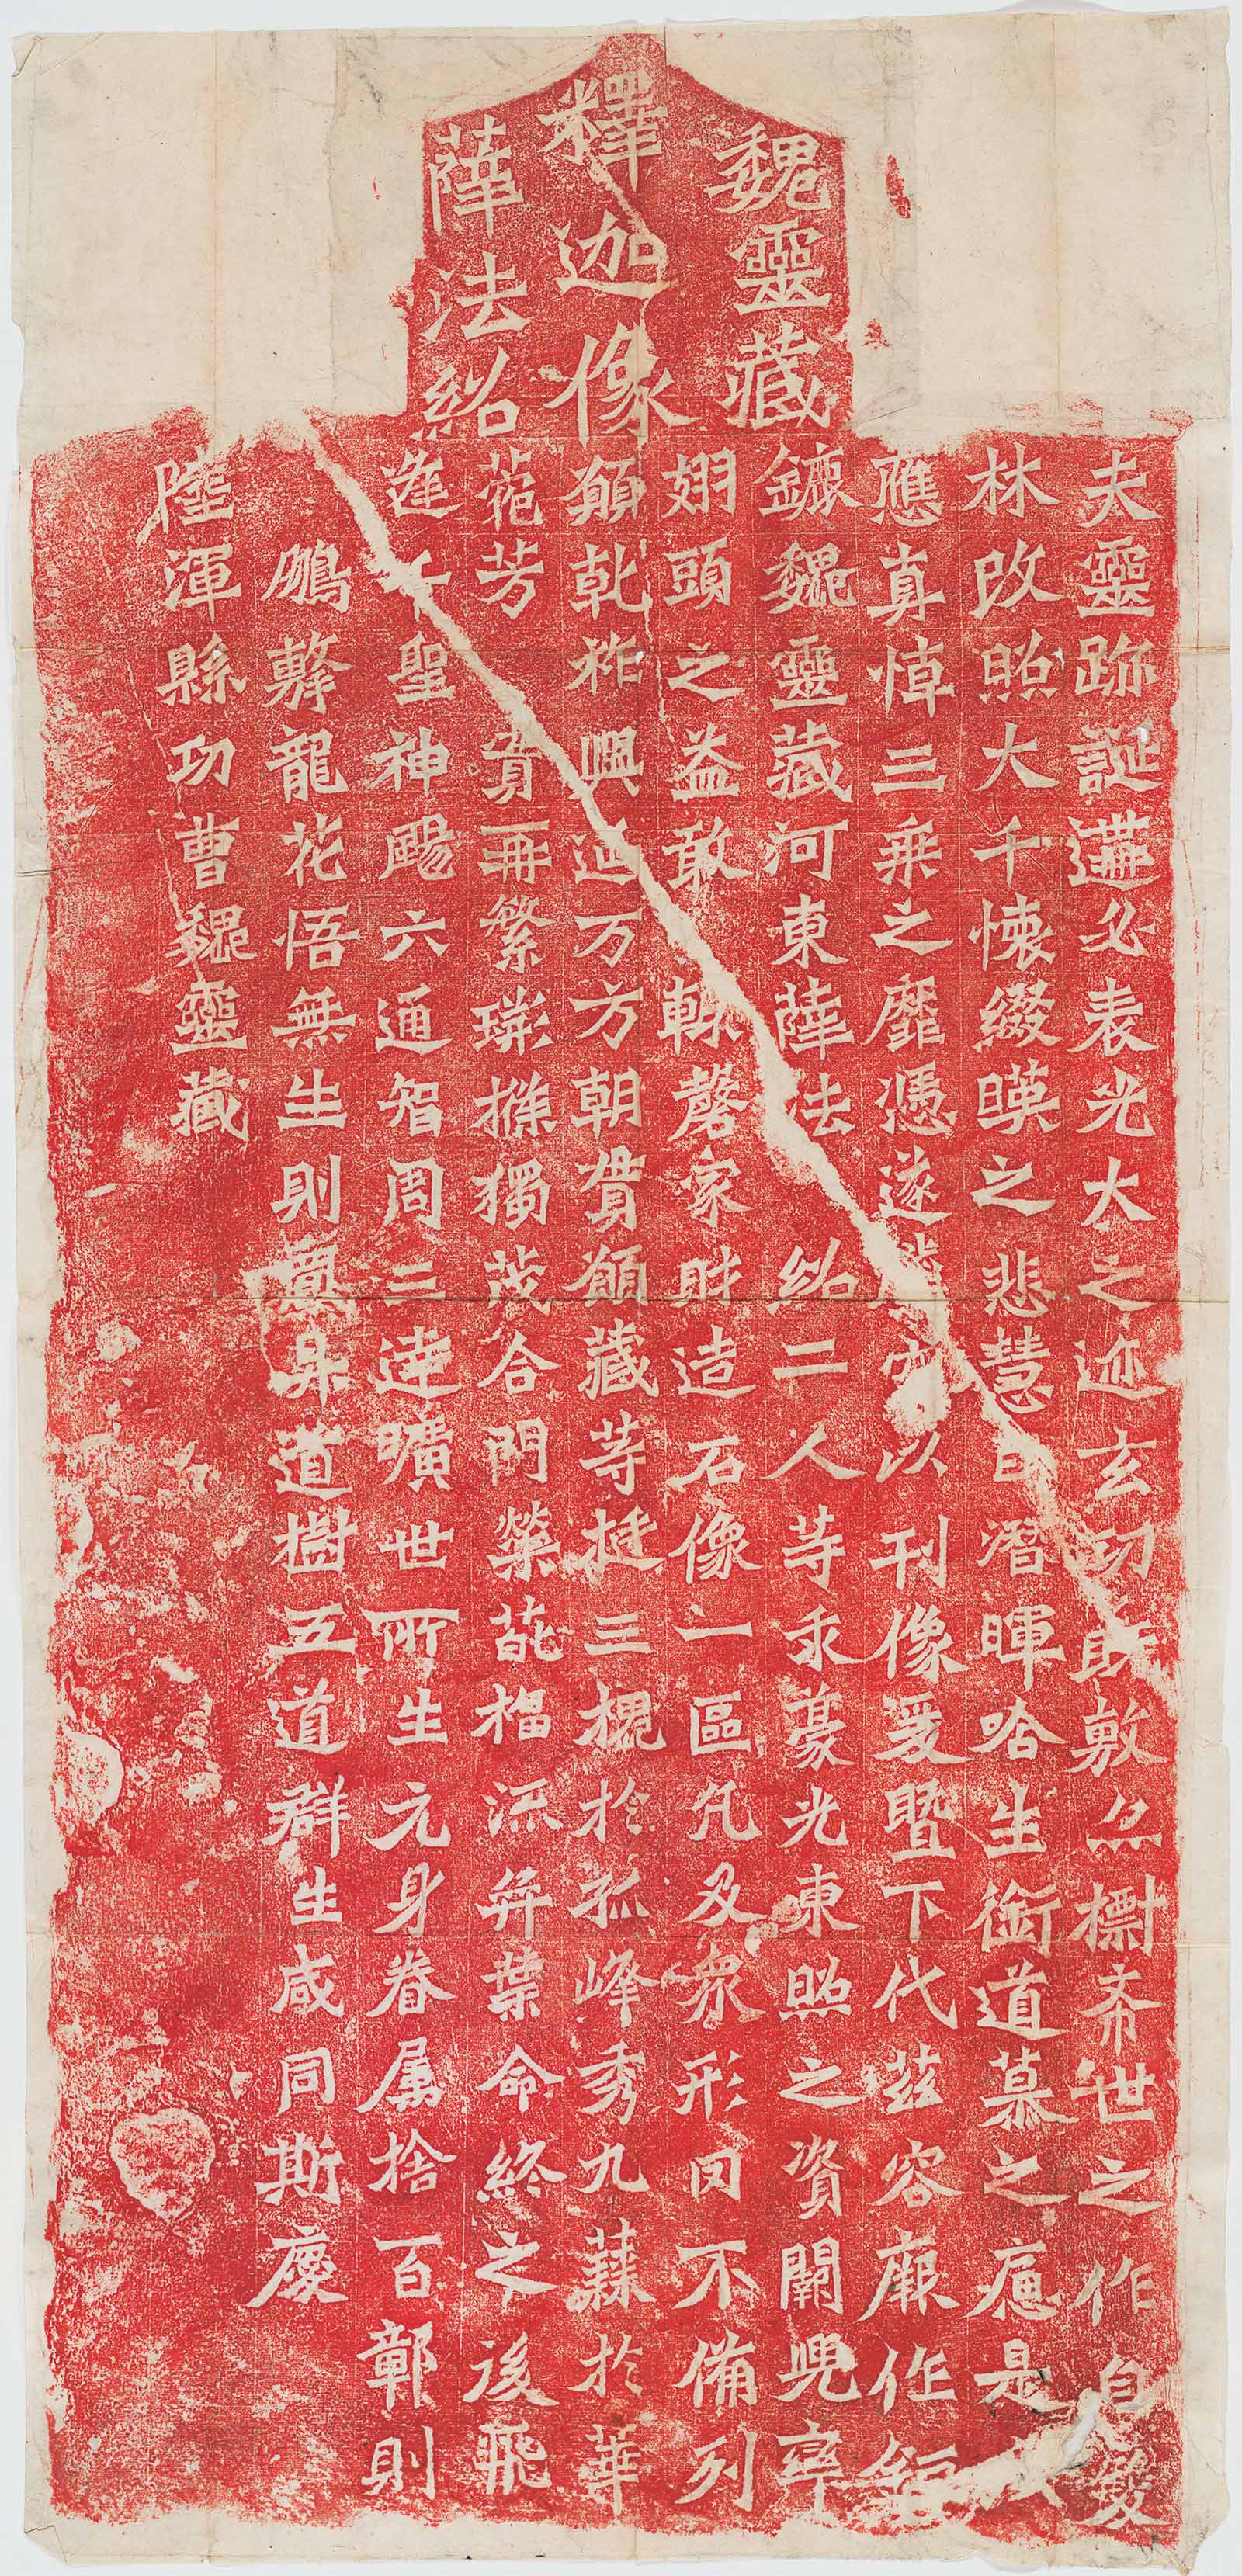 魏靈藏
釋迦像
薛法紹
夫靈跡誕遘必表光大之迹玄功既敷亦標希世之作自雙
林改照大千懷綴暎之悲慧日潛暉哈生銜道慕之痛是以
應真悼三乘之靡憑遂騰空以刊像爰暨下代茲容厥作鉅
鏕魏靈藏河東薛法紹二人等求豪光東照之資闕兜率
翅頭之益敢輒磬家財造石像一區凡及衆形罔不備列
願乾祚興延万方朝貫願藏等挺三槐於孤峰秀九蕀於華
菀芳實再繁瑹㨾獨茂合門榮葩福流弈葉命終之後飛
逢千聖神颺六通智周三達曠世所生元身眷属捨百鄣則
鵬擊龍花悟無生則囗昇道樹五道群生咸同斯慶
陸渾縣功曹魏靈藏